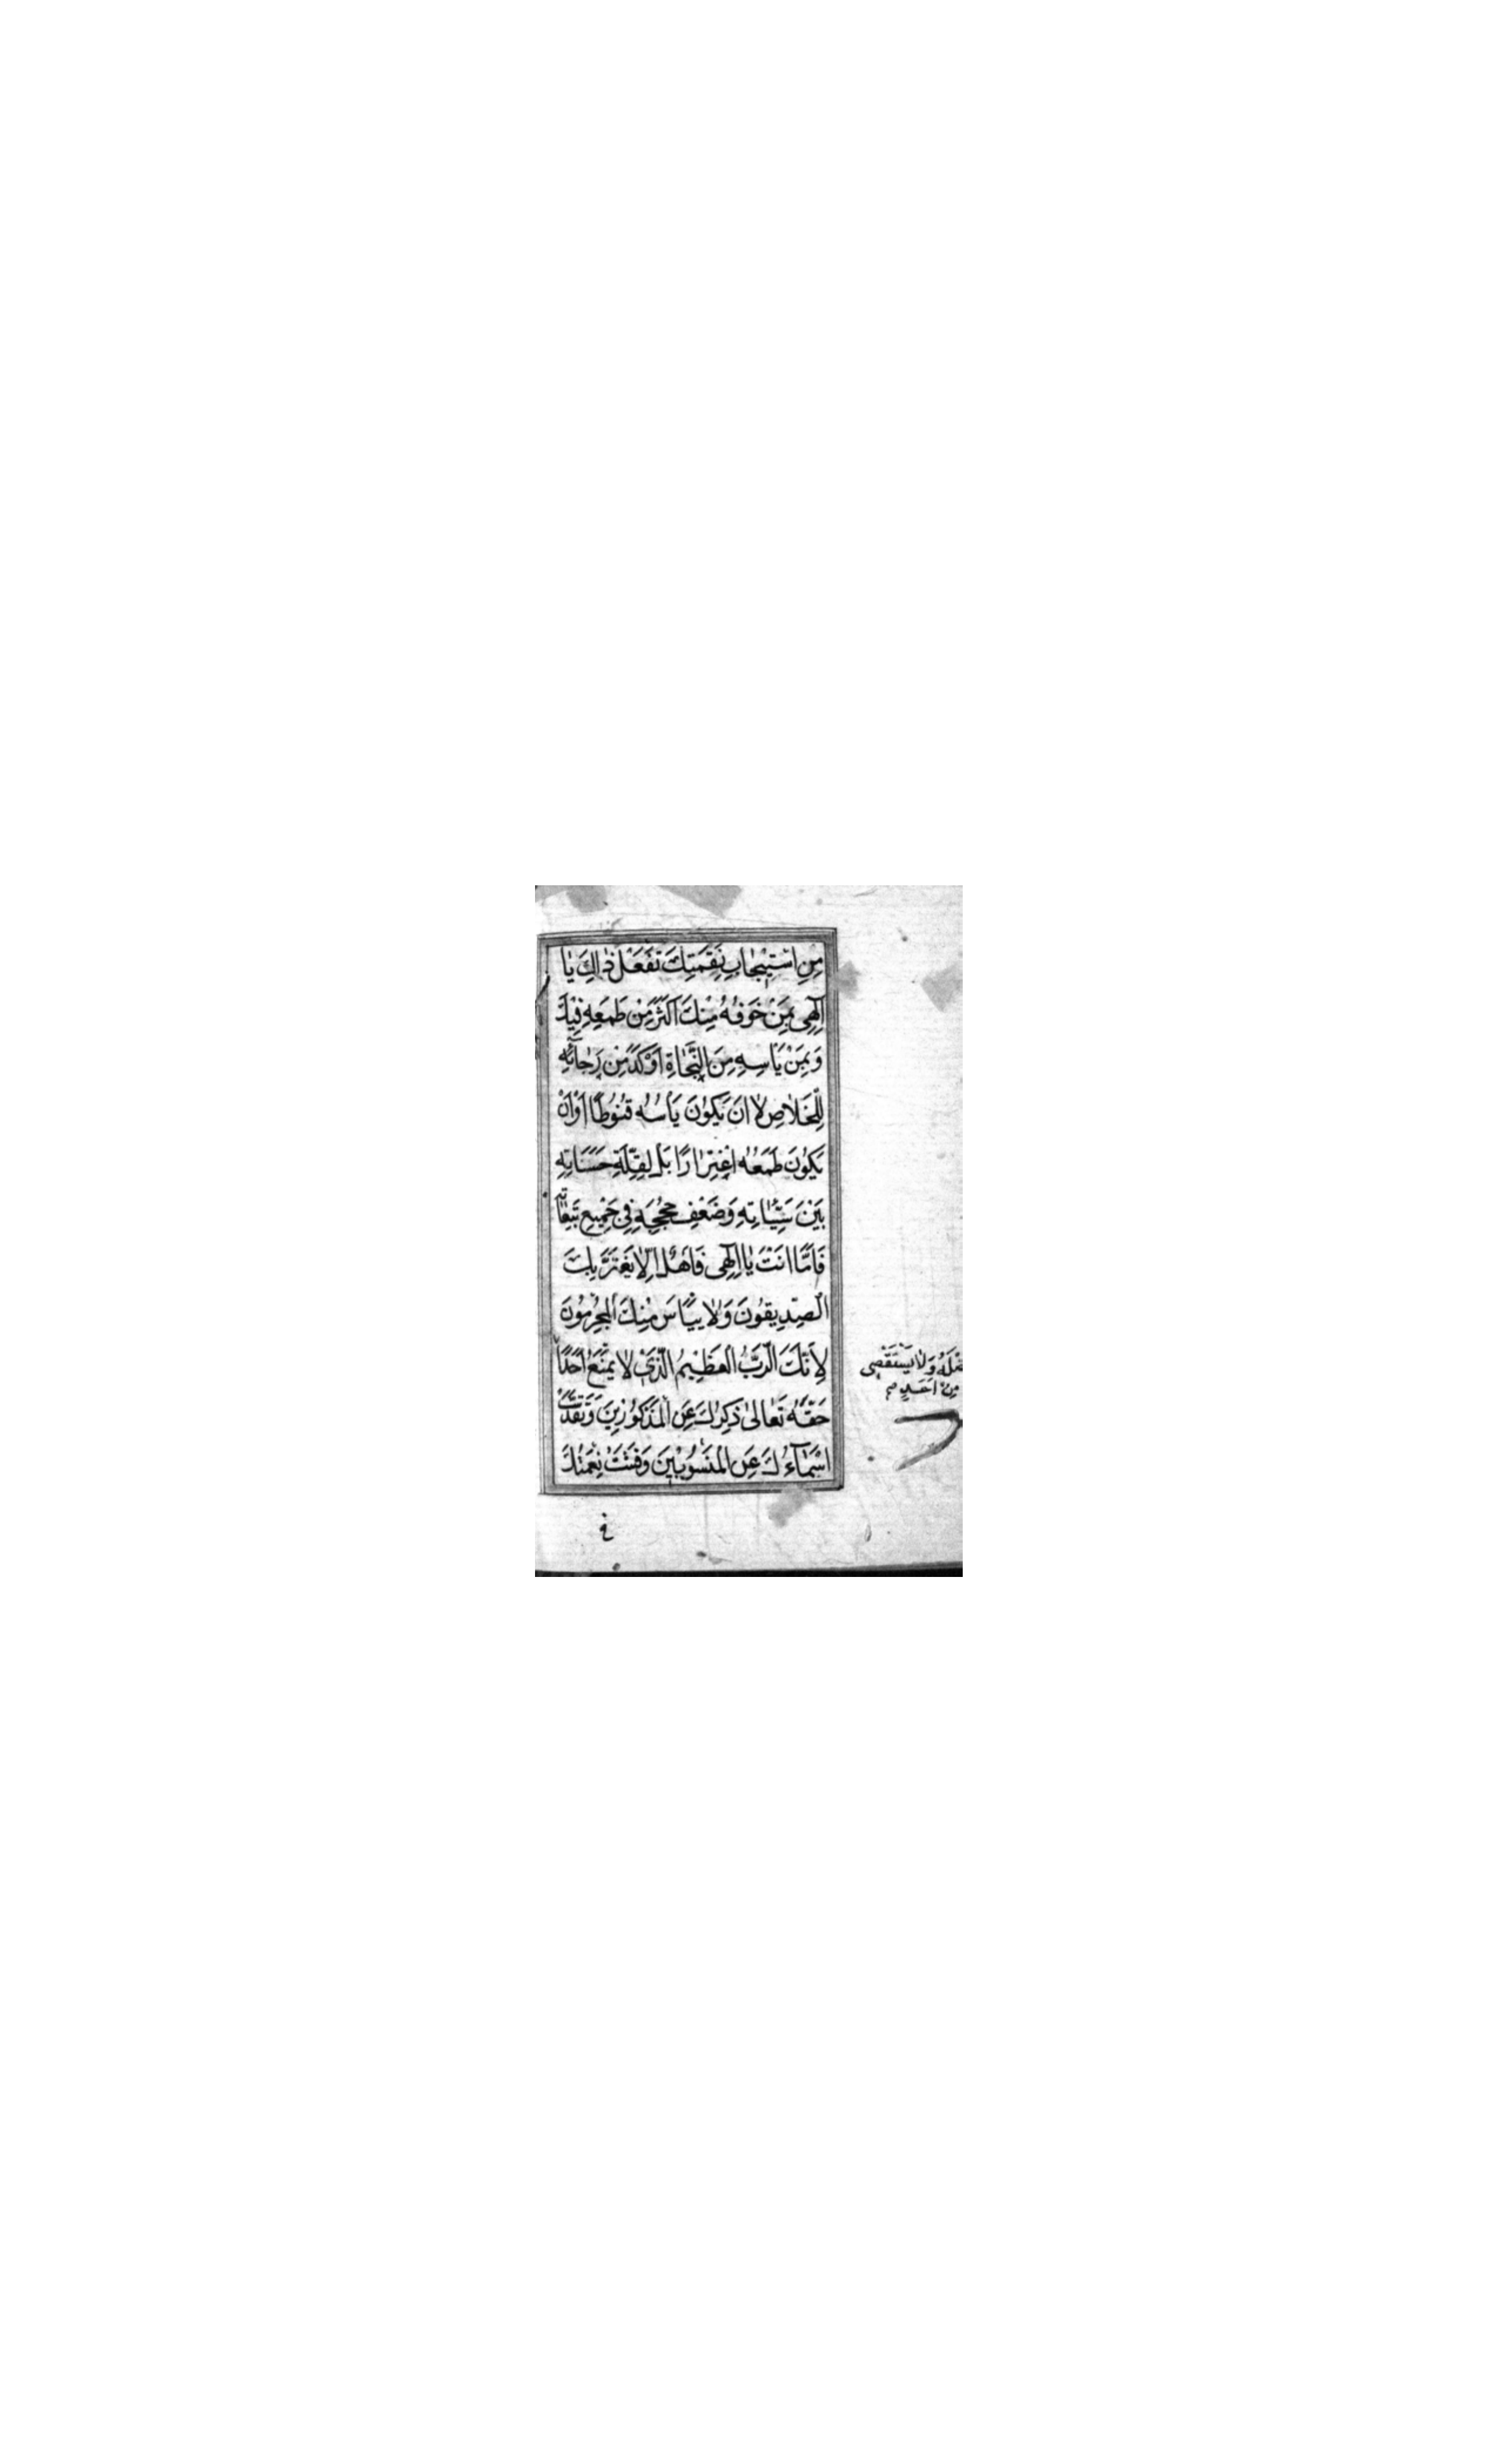 مِنِ اسْتِيْجٰابِ نَقِمَتِكَ تَفْعَلْ ذٰلِكَ يٰا
اِلٰهِى بِمَنْ خَوْفُهُ مِنْكَ اَكْثَرُ مِنْ طَمَعِهِ فِيْكَ
وَبِمَنْ يَاْسِهِ مِنَ النَّجٰاةِ اَوْكَدُ مِنْ رَجٰائِهِ
لِلْخَلٰاصِ لٰا اَنْ يَكُوْنَ يَاْسُهُ قُنُوْطًا اَوْ اَنْ
يَكُوْنَ طَمَعُهُ اغْتِرٰارًا بَلْ لِقِلَّةِ حَسَنٰاتِهِ
بَيْنَ سَيِّئٰاتِهِ وَضَعْفِ حُجَجِهِ فِيْ جَمِيْعِ تَبِعٰاتِهِ
فَاَمَّا اَنْتَ يٰا اِلٰهِى فَاَهْلٌ اَلّٰا يَغْتَرَّ بِكَ
الصِّدِيقُوْنَ وَلٰا يَيْاَسَ مِنْكَ الْمُجْرِمُوْنَ
لِاَنَّكَ الرَّبُّ الْعَظِيْمُ الَّذِيْ لٰا يَمْنَعُ اَحَدًا
حَقَّهُ تَعٰالٰى ذِكْرُكَ عَنِ الْمَذْكُوْرِيْنَ وَتَقَدَّسَ
اَسْمٰاءُكَ عَنِ الْمَنْسُوْبِيْنَ وَفَشَتْ نِعْمَتُكَ
فضْلَهُ وَلٰا يَسْتَقْصِى
مِنْ اَحَدٍ
في